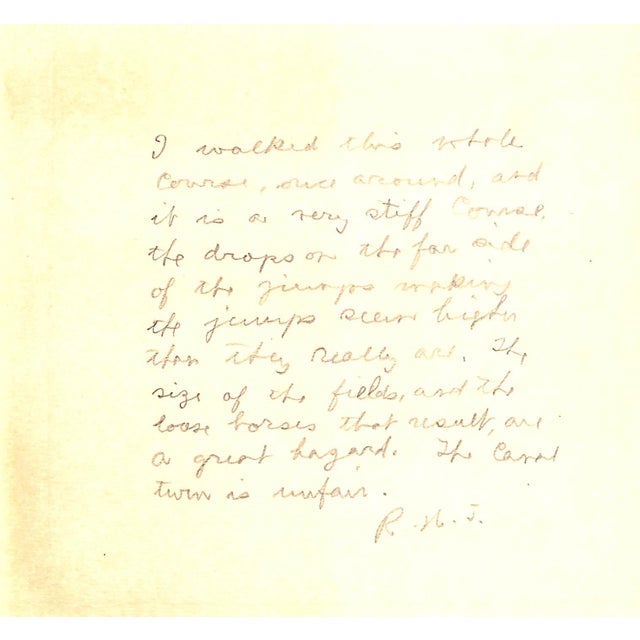 I walked this whole
Course, once around, and
it is a very stiff Course.
the drops on the far side
of the jumps making
the jumps seem higher
than they really are. The
size of the fields, and the
loose horses that result, are
a great hazard. The Canal
turn is unfair.
R. H. J.